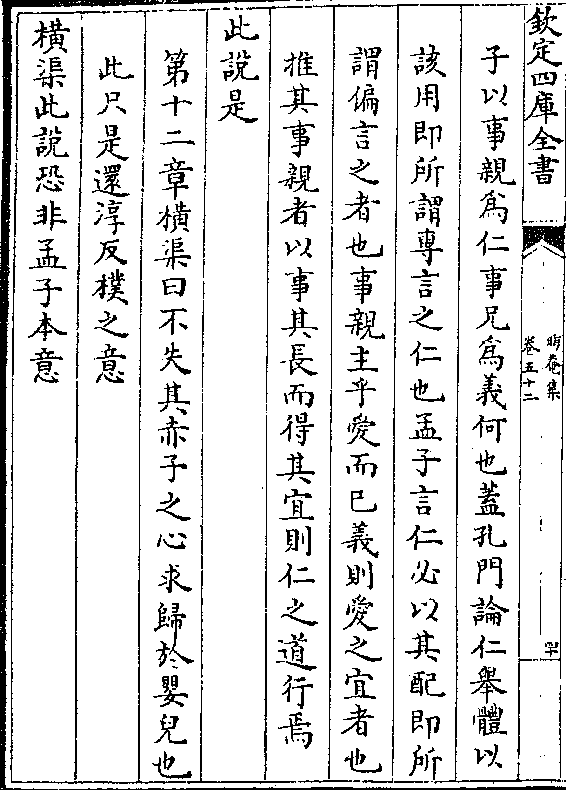 欽定四庫全書
晦菴集
卷五十二
子以事親爲仁事兄爲義何也蓋孔門論仁舉體以
該用即所謂專言之仁也孟子言仁必以其配即所
謂偏言之者也事親主乎愛而已義則愛之宜者也
推其事親者以事其長而得其宜則仁之道行焉
此說是
第十二章橫渠曰不失其赤子之心求歸於嬰兒也
此只是還淳反樸之意
橫渠此說恐非孟子本意